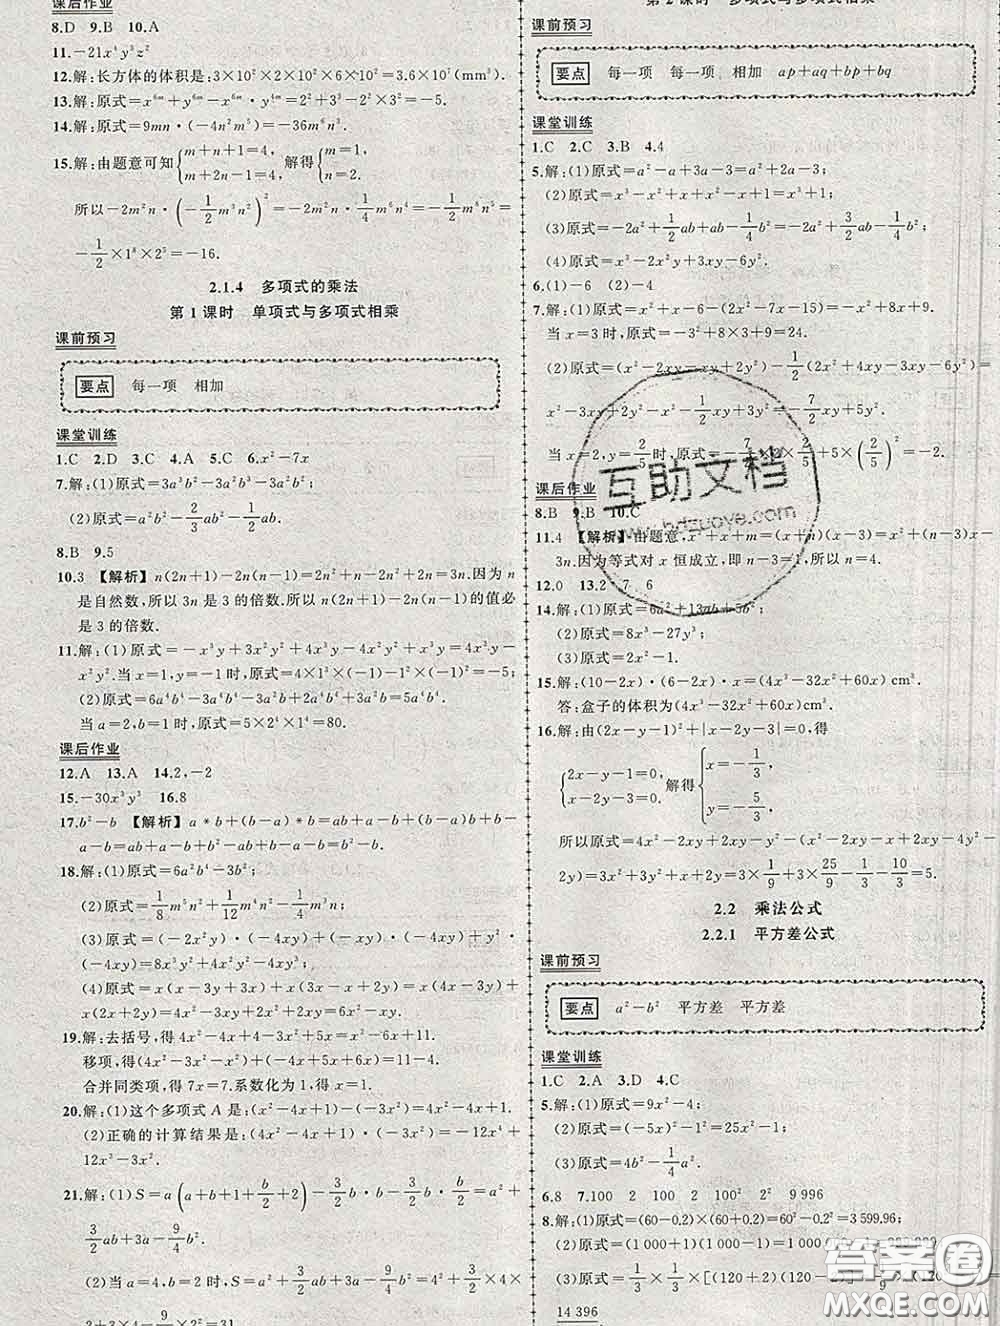 课后作业
8.D 9.B 10.A
11.-21x⁴y³z²
12.解:长方体的体积是:3×10²×2×10²×6×10²=3.6×10⁷(mm³).
13.解:原式=x⁶ᵐ+y⁶ᵐ-x⁶ᵐ·y⁴ᵐ=2²+3²-2×3²=-5.
14.解:原式=9mn·(-4n²m⁵)=-36m⁶n³.
15.解:由题意可知{m+n+1=4, m+2n-1=4, 解得{m=1, n=2.
所以-2m²n·(-1/2 m³n²)²=-2m²n·1/4 m⁶n⁴=-1/2 m⁸n⁵=
-1/2×1⁸×2⁵=-16.
2.1.4 多项式的乘法
第1课时 单项式与多项式相乘
课前预习
要点 每一项 相加
课堂训练
1.C 2.D 3.C 4.A 5.C 6.x²-7x
7.解:(1)原式=3a³b²-3a²b³-3a²b²;
(2)原式=a²b²-2/3 ab²-1/2 ab.
8.B 9.5
10.3 【解析】n(2n+1)-2n(n-1)=2n²+n-2n²+2n=3n.因为n
是自然数,所以3n是3的倍数.所以n(2n+1)-2n(n-1)的值必
是3的倍数.
11.解:(1)原式=-x³y+3x²y²+4x³y-4x²y²+x³y=4x³y-
x²y².当x=1,y=-1时,原式=4×1³×(-1)-1²×(-1)²=-5;
(2)原式=6a⁴b⁴-3a⁴b⁴-3a⁴b⁴+5a⁴b⁴=5a⁴b⁴.
当a=2,b=1时,原式=5×2⁴×1⁴=80.
课后作业
12.A 13.A 14.2,-2
15.-30x³y³ 16.8
17.b²-b 【解析】a*b+(b-a)*b=ab+a-b+(b-a)b+b-
a-b=ab+a-b+b²-ab+b-a-b=b²-b.
18.解:(1)原式=6a²b⁴-3b²;
(2)原式=1/8 m⁵n³+1/12 m⁴n²-1/4 m³n;
(3)原式=(-2x²y)·(-4xy)+(-xy)·(-4xy)+y²·
(-4xy)=8x³y²+4x²y²-4xy³;
(4)原式=x(x²+x³+x)=x(2x²+x³)=2x³+x⁴.
19.解:去括号,得4x²-4x+4-3x²+5x=x²-6x+6x+11.
移项,得(4x²-3x²-x²)+(-4x+5x+6x)=11-4.
合并同类项,得7x=7.系数化为1,得x=1.
20.解:(1)这个多项式A是:(x²-4x+1)-(-3x²)=4x²-4x+1.
(2)正确的计算结果是:(4x²-4x+1)·(-3x²)=-12x⁴+
12x³-3x².
21.解:(1)S=a(a+b+1+b/2+2)-3/2 b·3/2 b=a²+
3/2 ab+3a-9/4 b²;
(2)当a=4,b=2时,S=a²+3/2 ab+3a-9/4 b²=4²+3/2×4×
课前预习
要点 每一项 每一项 相加 ap+aq+bp+bq
课堂训练
1.C 2.C 3.B 4.4
5.解:(1)原式=a²-a+3a-3=a²+2a-3;
(2)原式=x³-x²+x+x²-x+1=x³+1;
(3)原式=-2a²+1/2 ab+ab-1/4 b²=-2a²+3/2 ab-1/4 b²;
(4)原式=x³-2x²y+3xy-6y².
6.(1)-6 (2)4
7.解:(1)原式=3x²+7x-6-(2x²-7x-15)
当x=3时,原式=3²+8×3+9=24.
=x²-3xy+2y²-x²-1/2 xy+3y²=-7/2 xy+5y².
课后作业
8.B 9.B 10.C
3n.因为等式对x恒成立,即n-3=1,所以n=4.
12.0 13.2 -7 6
14.解:(1)原式=6a²+13ab+5b²;
(2)原式=8x³-27y³;
(3)原式=2x²-1.
15.解:(10-2x)·(6-2x)·x=(4x³-32x²+60x)cm³.
答:盒子的体积为(4x³-32x²+60x)cm³.
16.解:由(2x-y-1)²+|x-2y-3|=0,得
{2x-y-1=0, x-2y-3=0. 解得{x=-1/3, y=-5/3.
所以原式=4x²-2xy+2xy-y²-(x²-2xy-x+xy-2y²-
2y)=3x²+3y²+x+2y=3×1/9+3×25/9-1/3-10/3=5.
2.2 乘法公式
2.2.1 平方差公式
课前预习
要点 a²-b² 平方差 平方差
课堂训练
1.C 2.A 3.D 4.C
5.解:(1)原式=9x²-4;
(2)原式=(-5x)²-1²=25x²-1;
(3)原式=4b²-1/4 a².
6.8 7.100 2 100 2 100² 2² 9 996
8.解:(1)原式=(60-0.2)×(60+0.2)=60²-0.2²=3 599.96;
(2)原式=(1 000+1)(1 000-1)=
14 396
互助文档
www.hdzuoye.com
答案圈
MXQE.COM